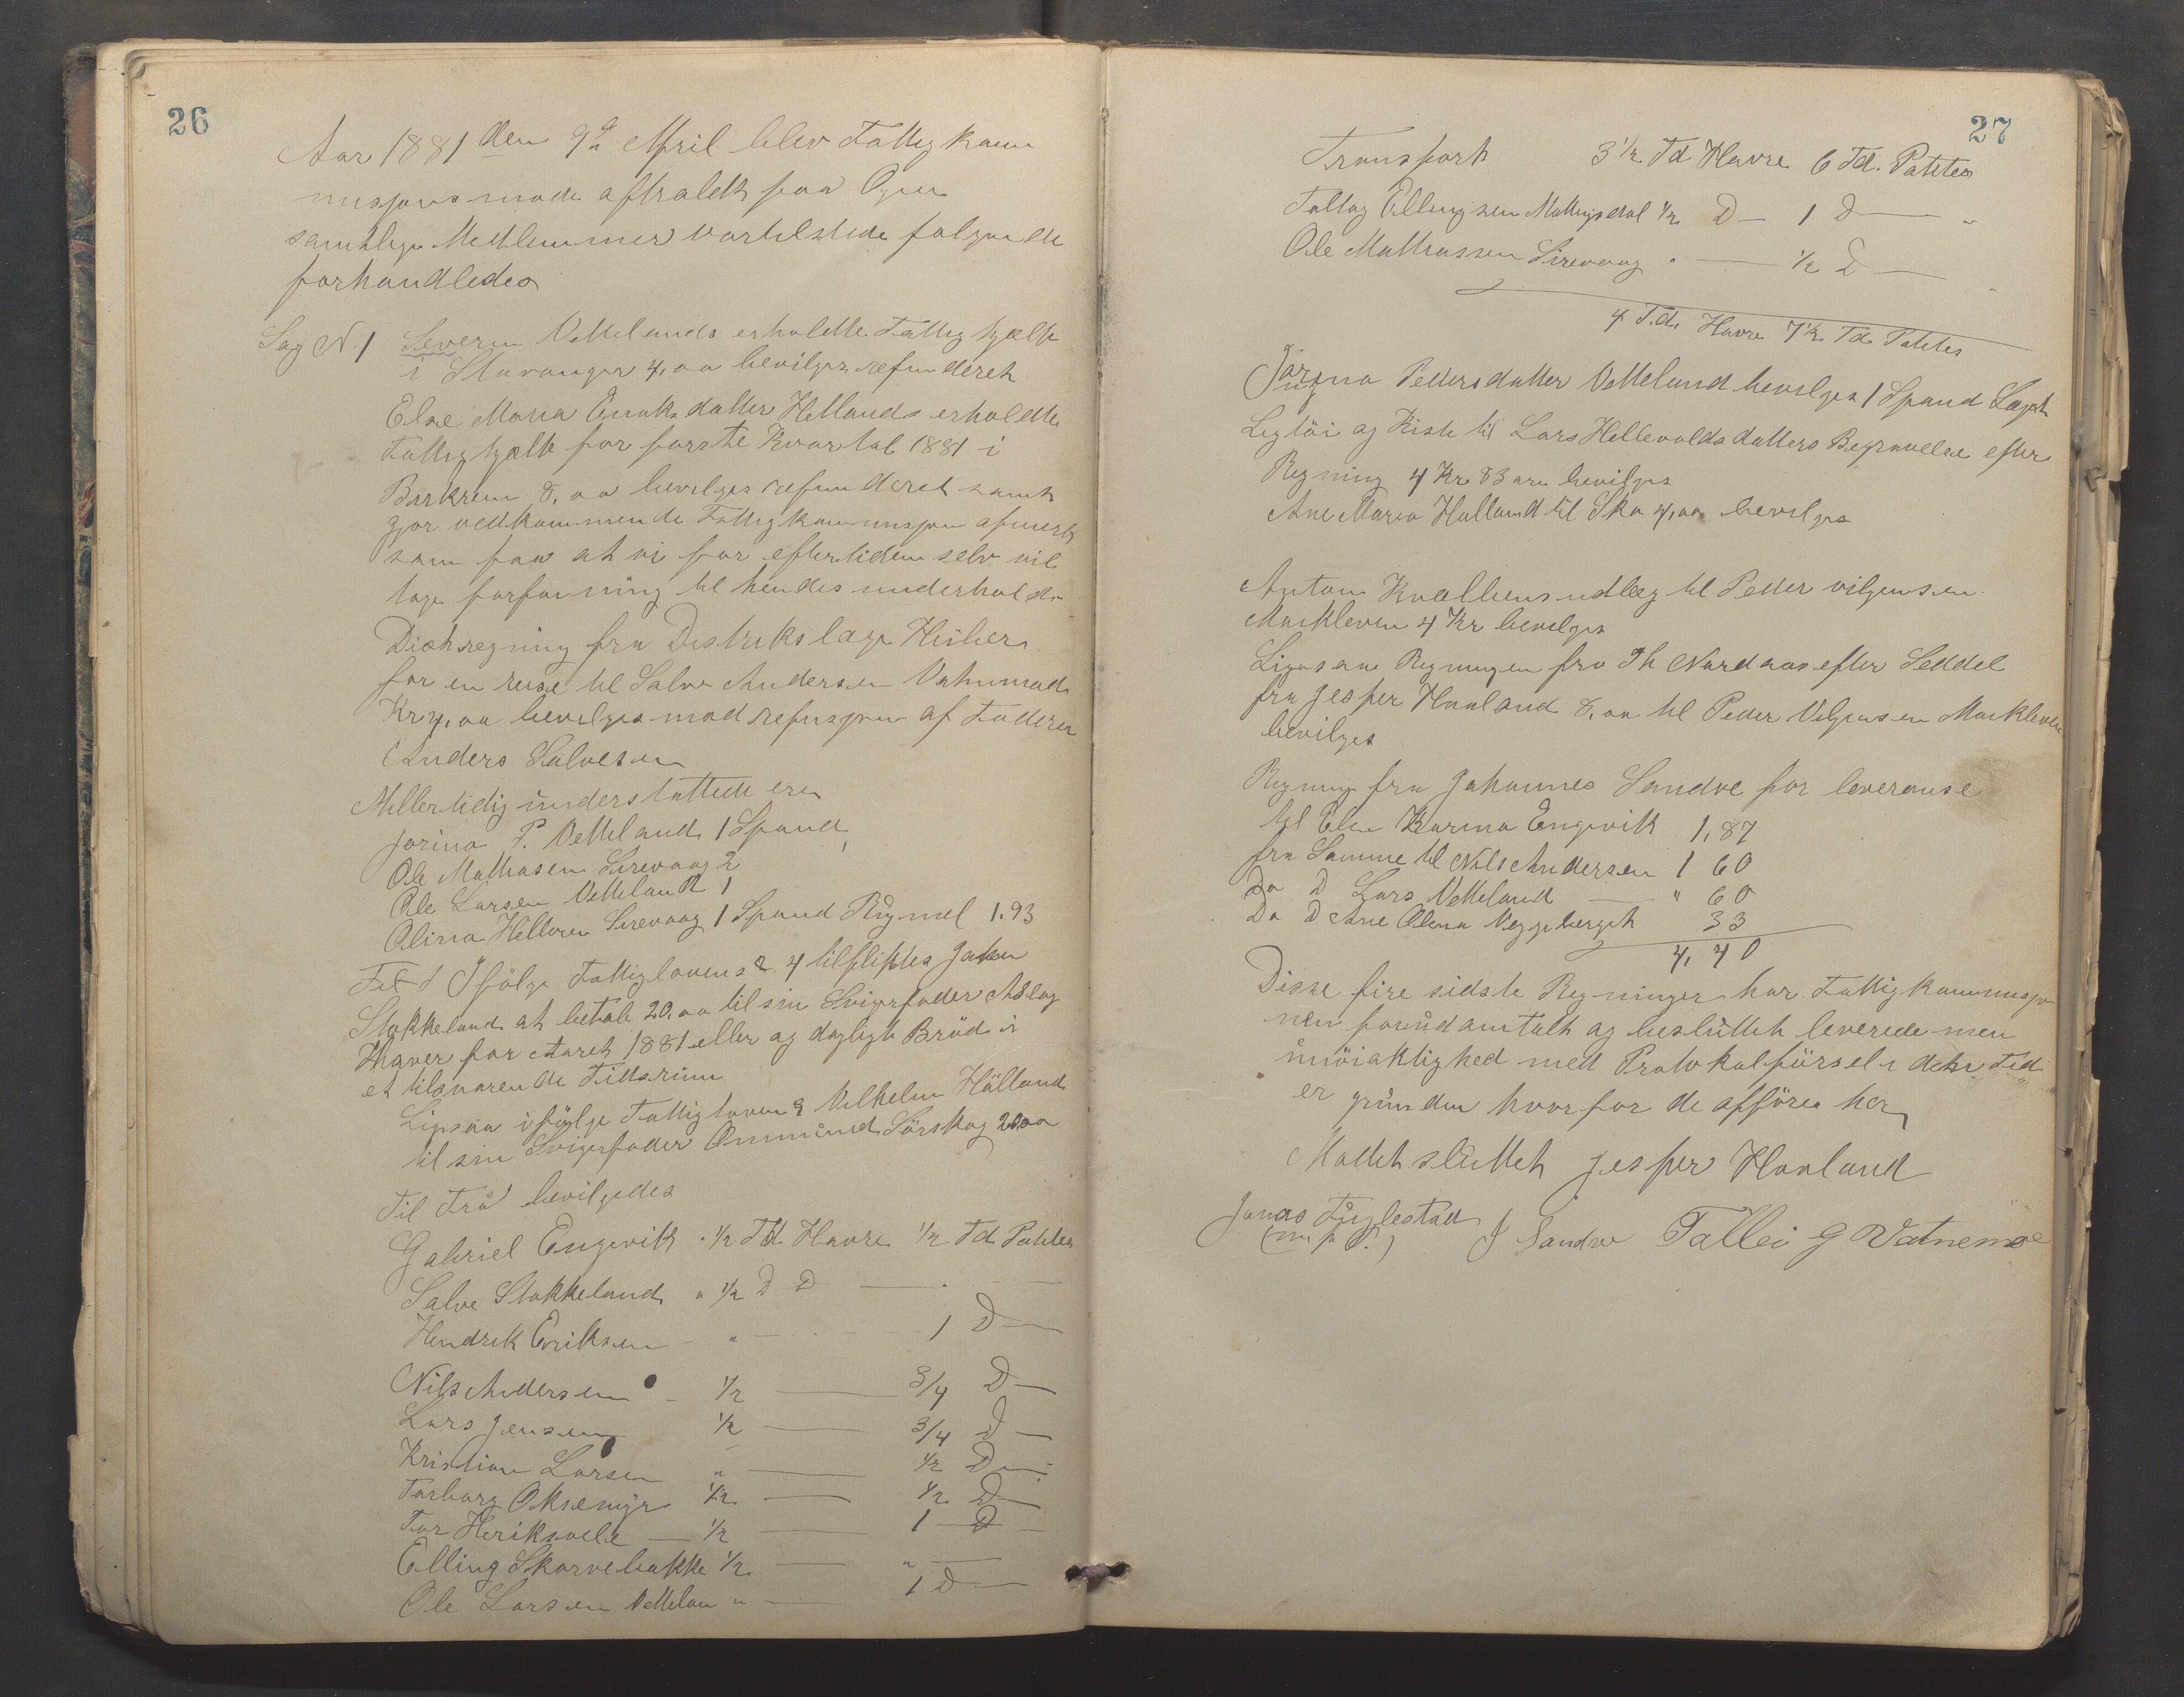 26
Aar 1881 den 9de April blev Fattigkom
misjons møde afhaldt paa Ogne
samtlige Medlemmer vartilstede følgende
forhandledes
Sag N. 1 Severin Vettelands erholdte Fattighjælp
i Stavanger 4,00 bevilges refunderet
Else Maria Enoksdatter Hetlands erholdte
Fattighjælp for første Kvartal 1881 i
Birkrem 8,00 bevilges refunderet samt
gjør vedkommende Fattigkommisjon afmerk
som paa at vi for eftertiden selv vil
tage forføining til hendes underhold
Diætregning fra Distrikslæge
for en reise til Salve Andersen Vatnemod
Kr 4,00 bevilges mod refusjon af Faderen
Anders Salvesen
Mellertidig understøttede ere
Jorina P. Vetteland 1 Spand
Ole Mathiasen Sirevaag 2
Ole Larsen Vetteland 1
Olina Helleren Sirevaag 1 Spand Rugmel 1.93
Ifølge Fattiglovens § 4 tilpligtes
Stokkeland at betale 20,00 til sin Svigerfader Aslag
for Aaret 1881 eller og dagligt Brød i
et tilsvarende
Ligesaa ifølge Fattigloven § Vilhelm Hålland
til sin Svigerfader Ommund Sørskog 20,00
Til Frø bevilgedes
Gabriel Engevik " 1/2 Td Havre 1/2 Td Patetes
Salve Stokkeland " 1/2 D D — "
Hendrik Eriksen — " — 1 D —
Nils Andersen — 1/2 — 3/4 D —
Lars Jensen 1/2 — 3/4 D —
Kristian Larsen " — 1/2 D —
Torborg Oksemyr 1/2 — 1/2 D —
Tor Heriksvele — 1/2 — 1 D —
Elling Skarvebakke 1/2 — " —
Ole Larsen Vettelan " — 1 D —
27
Transport 3 1/2 Td Havre 6 Td. Patetes
Tollag Ellingsen Mattingsdal 1/2 D — 1 D — "
Ole Mathiassen Sirevaag " — 1/2 D —
4 Td. Havre 7 1/2 Td Patetes
Jorina Pedersdatter Vetteland bevilges 1 Spand
Ligtøi og Kiste til Lars Hellevolds datters Begravelse efter
Regning 4 Kr 83 øre bevilges
Ane Maria Halland til Sko 4,00 bevilges
Anton Kvalbens udlæg til Peder
Markleven 4 Kr bevilges
Ligesaa Regningen fra Th Nordaas efter Seddel
fra Jesper Hauland 8,00 til Peder
bevilges
Regning fra Johannes Sandve for leveranse
til Elen Karina Engevik 1,87
fra Samme til Nils Andersen 1 60
Do D Lars Vetteland — " 60
Do D Ane Olena Veggebergsh 33
4,40
Disse fire sidste Regninger har Fattigkommisjo
nen forud omtalt og besluttet leverede men
unøiaktighed med Protokolførsel i den Tid
er grunden hvorfor de opføres her
Mødet sluttet Jesper Hauland
Jonas Fuglestad
J Sandve Tallei G Vatnemoe
(m p P.)